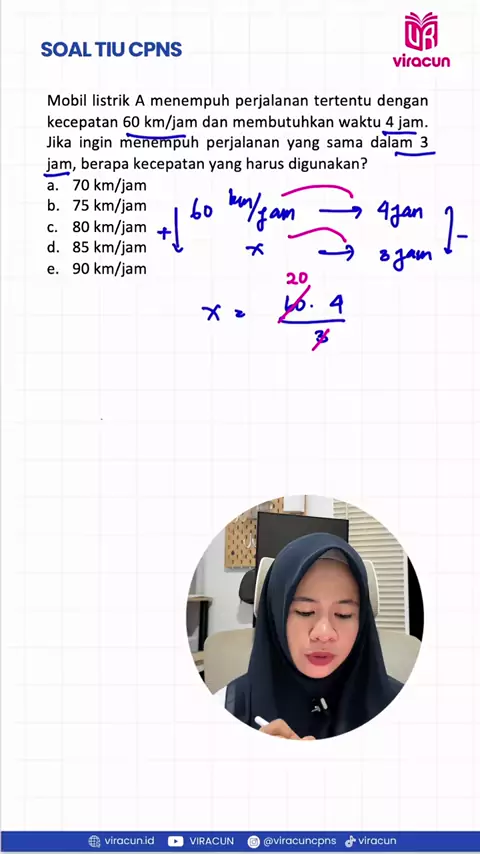 SOAL TIU CPNS
VR
viracun
Mobil listrik A menempuh perjalanan tertentu dengan
kecepatan 60 km/jam dan membutuhkan waktu 4 jam.
Jika ingin menempuh perjalanan yang sama dalam 3
jam, berapa kecepatan yang harus digunakan?
a. 70 km/jam
b. 75 km/jam
c. 80 km/jam
d. 85 km/jam
e. 90 km/jam
+ 60 km/jam → 4 jam -
x → 3 jam
20
x = 60 . 4
3
viracun.id VIRACUN @viracuncpns viracun